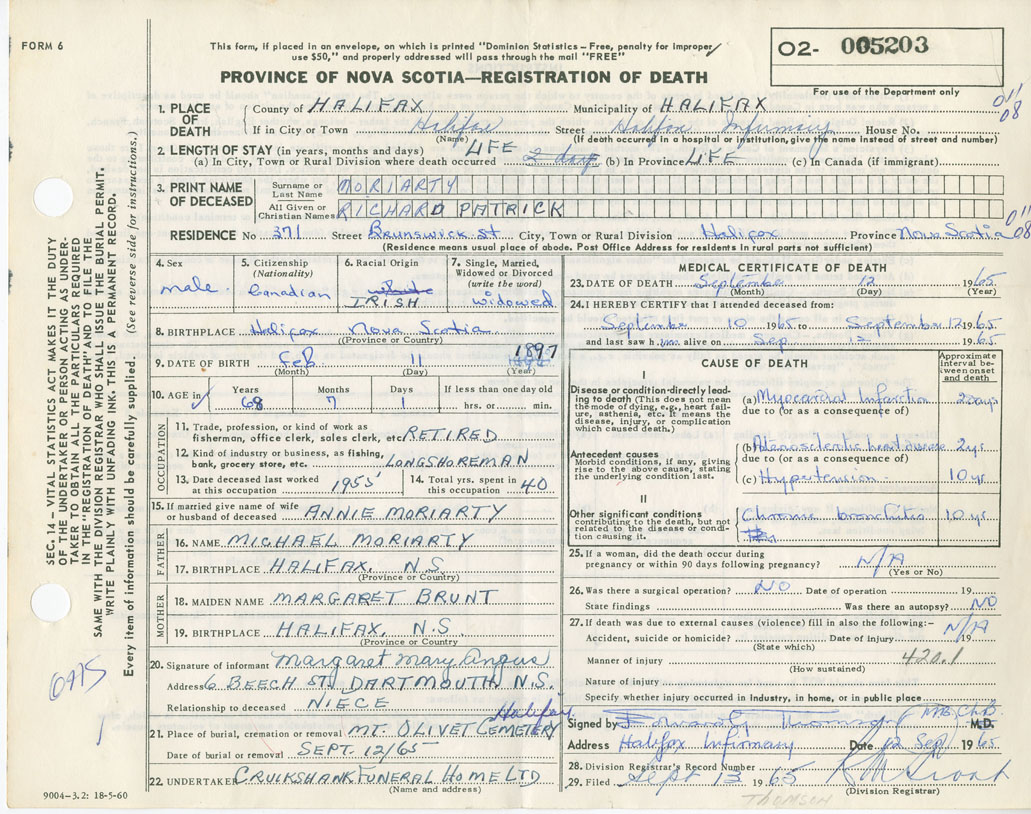 FORM 6
This form, if placed in an envelope, on which is printed "Dominion Statistics – Free, penalty for improper
use $50," and properly addressed will pass through the mail "FREE"
O2- 005203
PROVINCE OF NOVA SCOTIA—REGISTRATION OF DEATH
For use of the Department only
011
08
1. PLACE OF DEATH County of HALIFAX Municipality of HALIFAX
If in City or Town Halifax Street Halifax Infirmary House No.
(Name) (If death occurred in a hospital or institution, give the name instead of street and number)
2. LENGTH OF STAY (in years, months and days) LIFE
(a) In City, Town or Rural Division where death occurred 2 days (b) In Province LIFE (c) In Canada (if immigrant)
3. PRINT NAME OF DECEASED Surname or Last Name MORIARTY
All Given or Christian Names RICHARD PATRICK
011
08
RESIDENCE No 371 Street Brunswick St City, Town or Rural Division Halifax Province Nova Scotia
(Residence means usual place of abode. Post Office Address for residents in rural parts not sufficient)
4. Sex male
5. Citizenship (Nationality) Canadian
6. Racial Origin white IRISH
7. Single, Married, Widowed or Divorced (write the word) widowed
8. BIRTHPLACE Halifax Nova Scotia
(Province or Country)
9. DATE OF BIRTH Feb 11 1897
(Month) (Day) (Year)
10. AGE in Years 68 Months 7 Days 1 If less than one day old hrs. or min.
OCCUPATION
11. Trade, profession, or kind of work as fisherman, office clerk, sales clerk, etc. RETIRED
12. Kind of industry or business, as fishing, bank, grocery store, etc. LONGSHOREMAN
13. Date deceased last worked at this occupation 1955
14. Total yrs. spent in this occupation 40
15. If married give name of wife or husband of deceased ANNIE MORIARTY
FATHER
16. NAME MICHAEL MORIARTY
17. BIRTHPLACE HALIFAX, N.S.
(Province or Country)
MOTHER
18. MAIDEN NAME MARGARET BRUNT
19. BIRTHPLACE HALIFAX, N.S.
(Province or Country)
20. Signature of informant Margaret Mary Angus
Address 6 BEECH ST. DARTMOUTH, N.S.
Relationship to deceased NIECE
Halifax
21. Place of burial, cremation or removal MT. OLIVET CEMETERY
Date of burial or removal SEPT. 12/65
22. UNDERTAKER CRUIKSHANK FUNERAL HOME LTD
(Name and address)
MEDICAL CERTIFICATE OF DEATH
23. DATE OF DEATH September 12 1965
(Month) (Day) (Year)
24. I HEREBY CERTIFY that I attended deceased from:
September 10 1965 to September 12 1965
and last saw him alive on Sep 12 1965
CAUSE OF DEATH
Approximate interval between onset and death
I
Disease or condition directly leading to death (This does not mean the mode of dying, e.g., heart failure, asthenia, etc. It means the disease, injury, or complication which caused death.)
(a) Myocardial Infarction 2 days
due to (or as a consequence of)
Antecedent causes
Morbid conditions, if any, giving rise to the above cause, stating the underlying condition last.
(b) Atherosclerotic heart disease 2 yrs
due to (or as a consequence of)
(c) Hypertension 10 yrs
II
Other significant conditions contributing to the death, but not related to the disease or condition causing it.
Chronic bronchitis 10 yrs
25. If a woman, did the death occur during pregnancy or within 90 days following pregnancy? N/A
(Yes or No)
26. Was there a surgical operation? NO Date of operation 19
State findings Was there an autopsy? NO
27. If death was due to external causes (violence) fill in also the following:– N/A
Accident, suicide or homicide? Date of injury 19
(State which)
Manner of injury 420.1
(How sustained)
Nature of injury
Specify whether injury occurred in industry, in home, or in public place
Signed by Edward Thomson MB, ChB M.D.
Address Halifax Infirmary Date 12 Sep 1965
28. Division Registrar's Record Number
29. Filed Sept 13 1965
(Division Registrar)
THOMSON
9004-3.2: 18-5-60
SEC. 14 – VITAL STATISTICS ACT MAKES IT THE DUTY
OF THE UNDERTAKER OR PERSON ACTING AS UNDER-
TAKER TO OBTAIN ALL THE PARTICULARS REQUIRED
IN THE "REGISTRATION OF DEATH" AND TO FILE THE
SAME WITH THE DIVISION REGISTRAR WHO SHALL ISSUE THE BURIAL PERMIT.
WRITE PLAINLY WITH UNFADING INK. THIS IS A PERMANENT RECORD.
Every item of information should be carefully supplied. (See reverse side for instructions.)